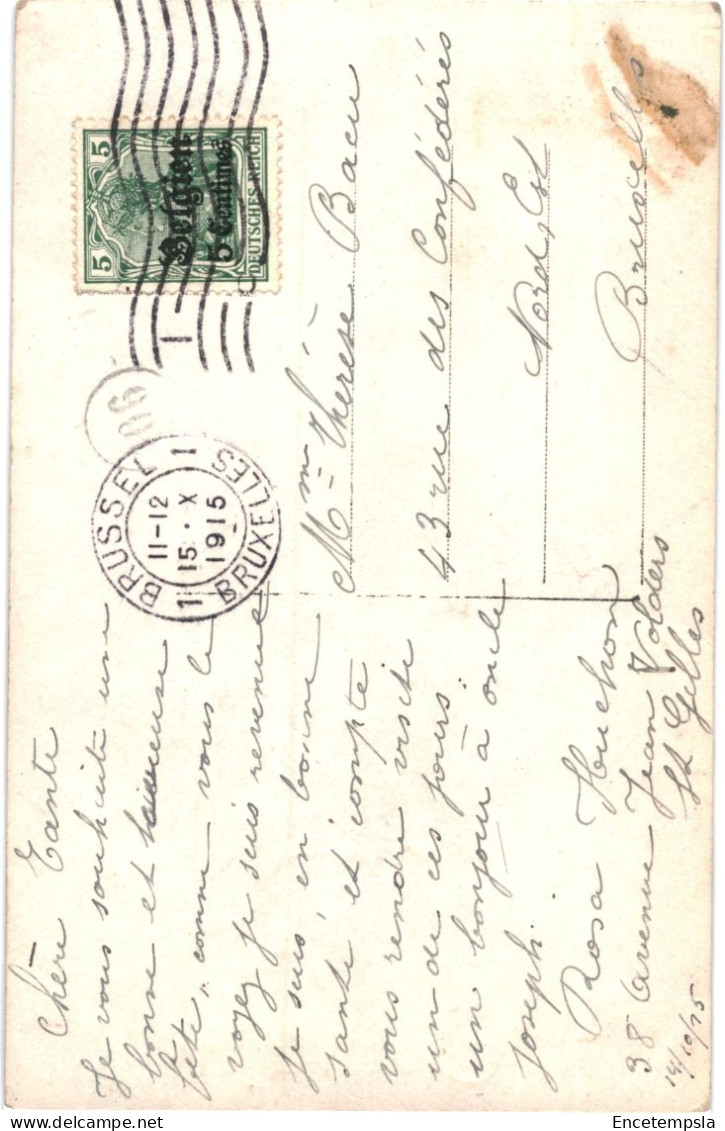 Chère Tante
Je vous souhaite une
bonne et heureuse
fête, comme vous le
voyez je suis revenue
je suis, en bonne
santé et compte
vous rendre visite
un de ces jours.
un bonjour à oncle
Joseph.
Rosa Huchon
38 Avenue Jean Volders
St Gilles
14/10/15
5 5
Belgien
5 Centimes
DEUTSCHES REICH
1 BRUSSEL 1
11-12
15 . X
1915
1 BRUXELLES
Mme Thérèse Bacu
43 rue des Confédérés
Nord, Est
Bruxelles
Encetempsla